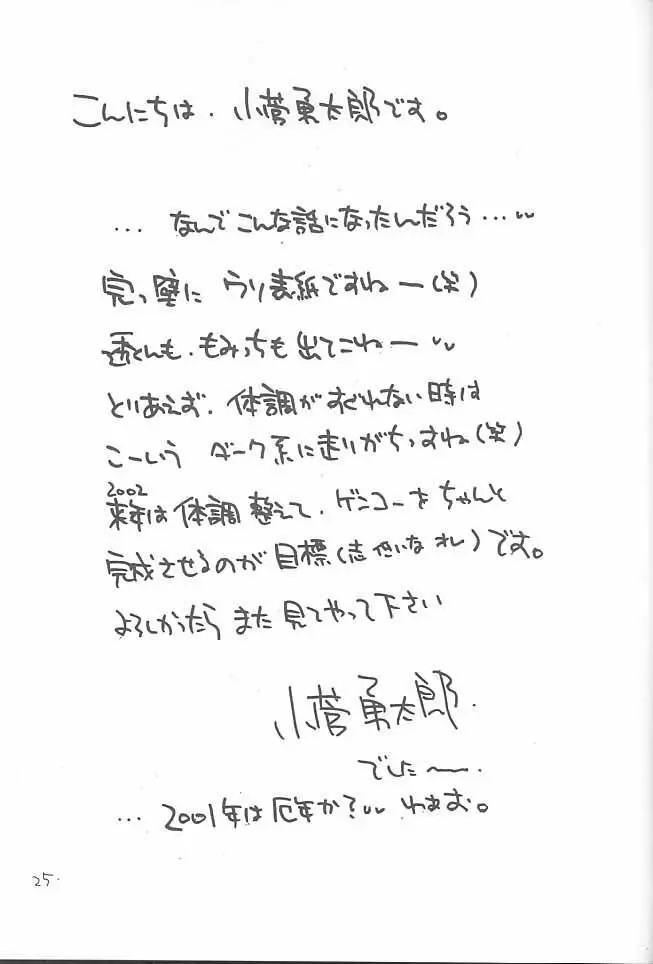 こんにちは、小菅勇太郎です。
… なんでこんな話になったんだろう…
完っ壁に ウソ表紙ですねー(笑)
透くんも、もみっちも出てこねー
とりあえず、体調がすぐれない時は
こーいう ダーク系に走りがちっすね(笑)
2002
来年は体調整えて、ゲンコーをちゃんと
完成させるのが目標(志低いな オレ)です。
よろしかったら また見てやって下さい
小菅勇太郎.
でした〜.
… 2001年は厄年か? わぁお。
25.